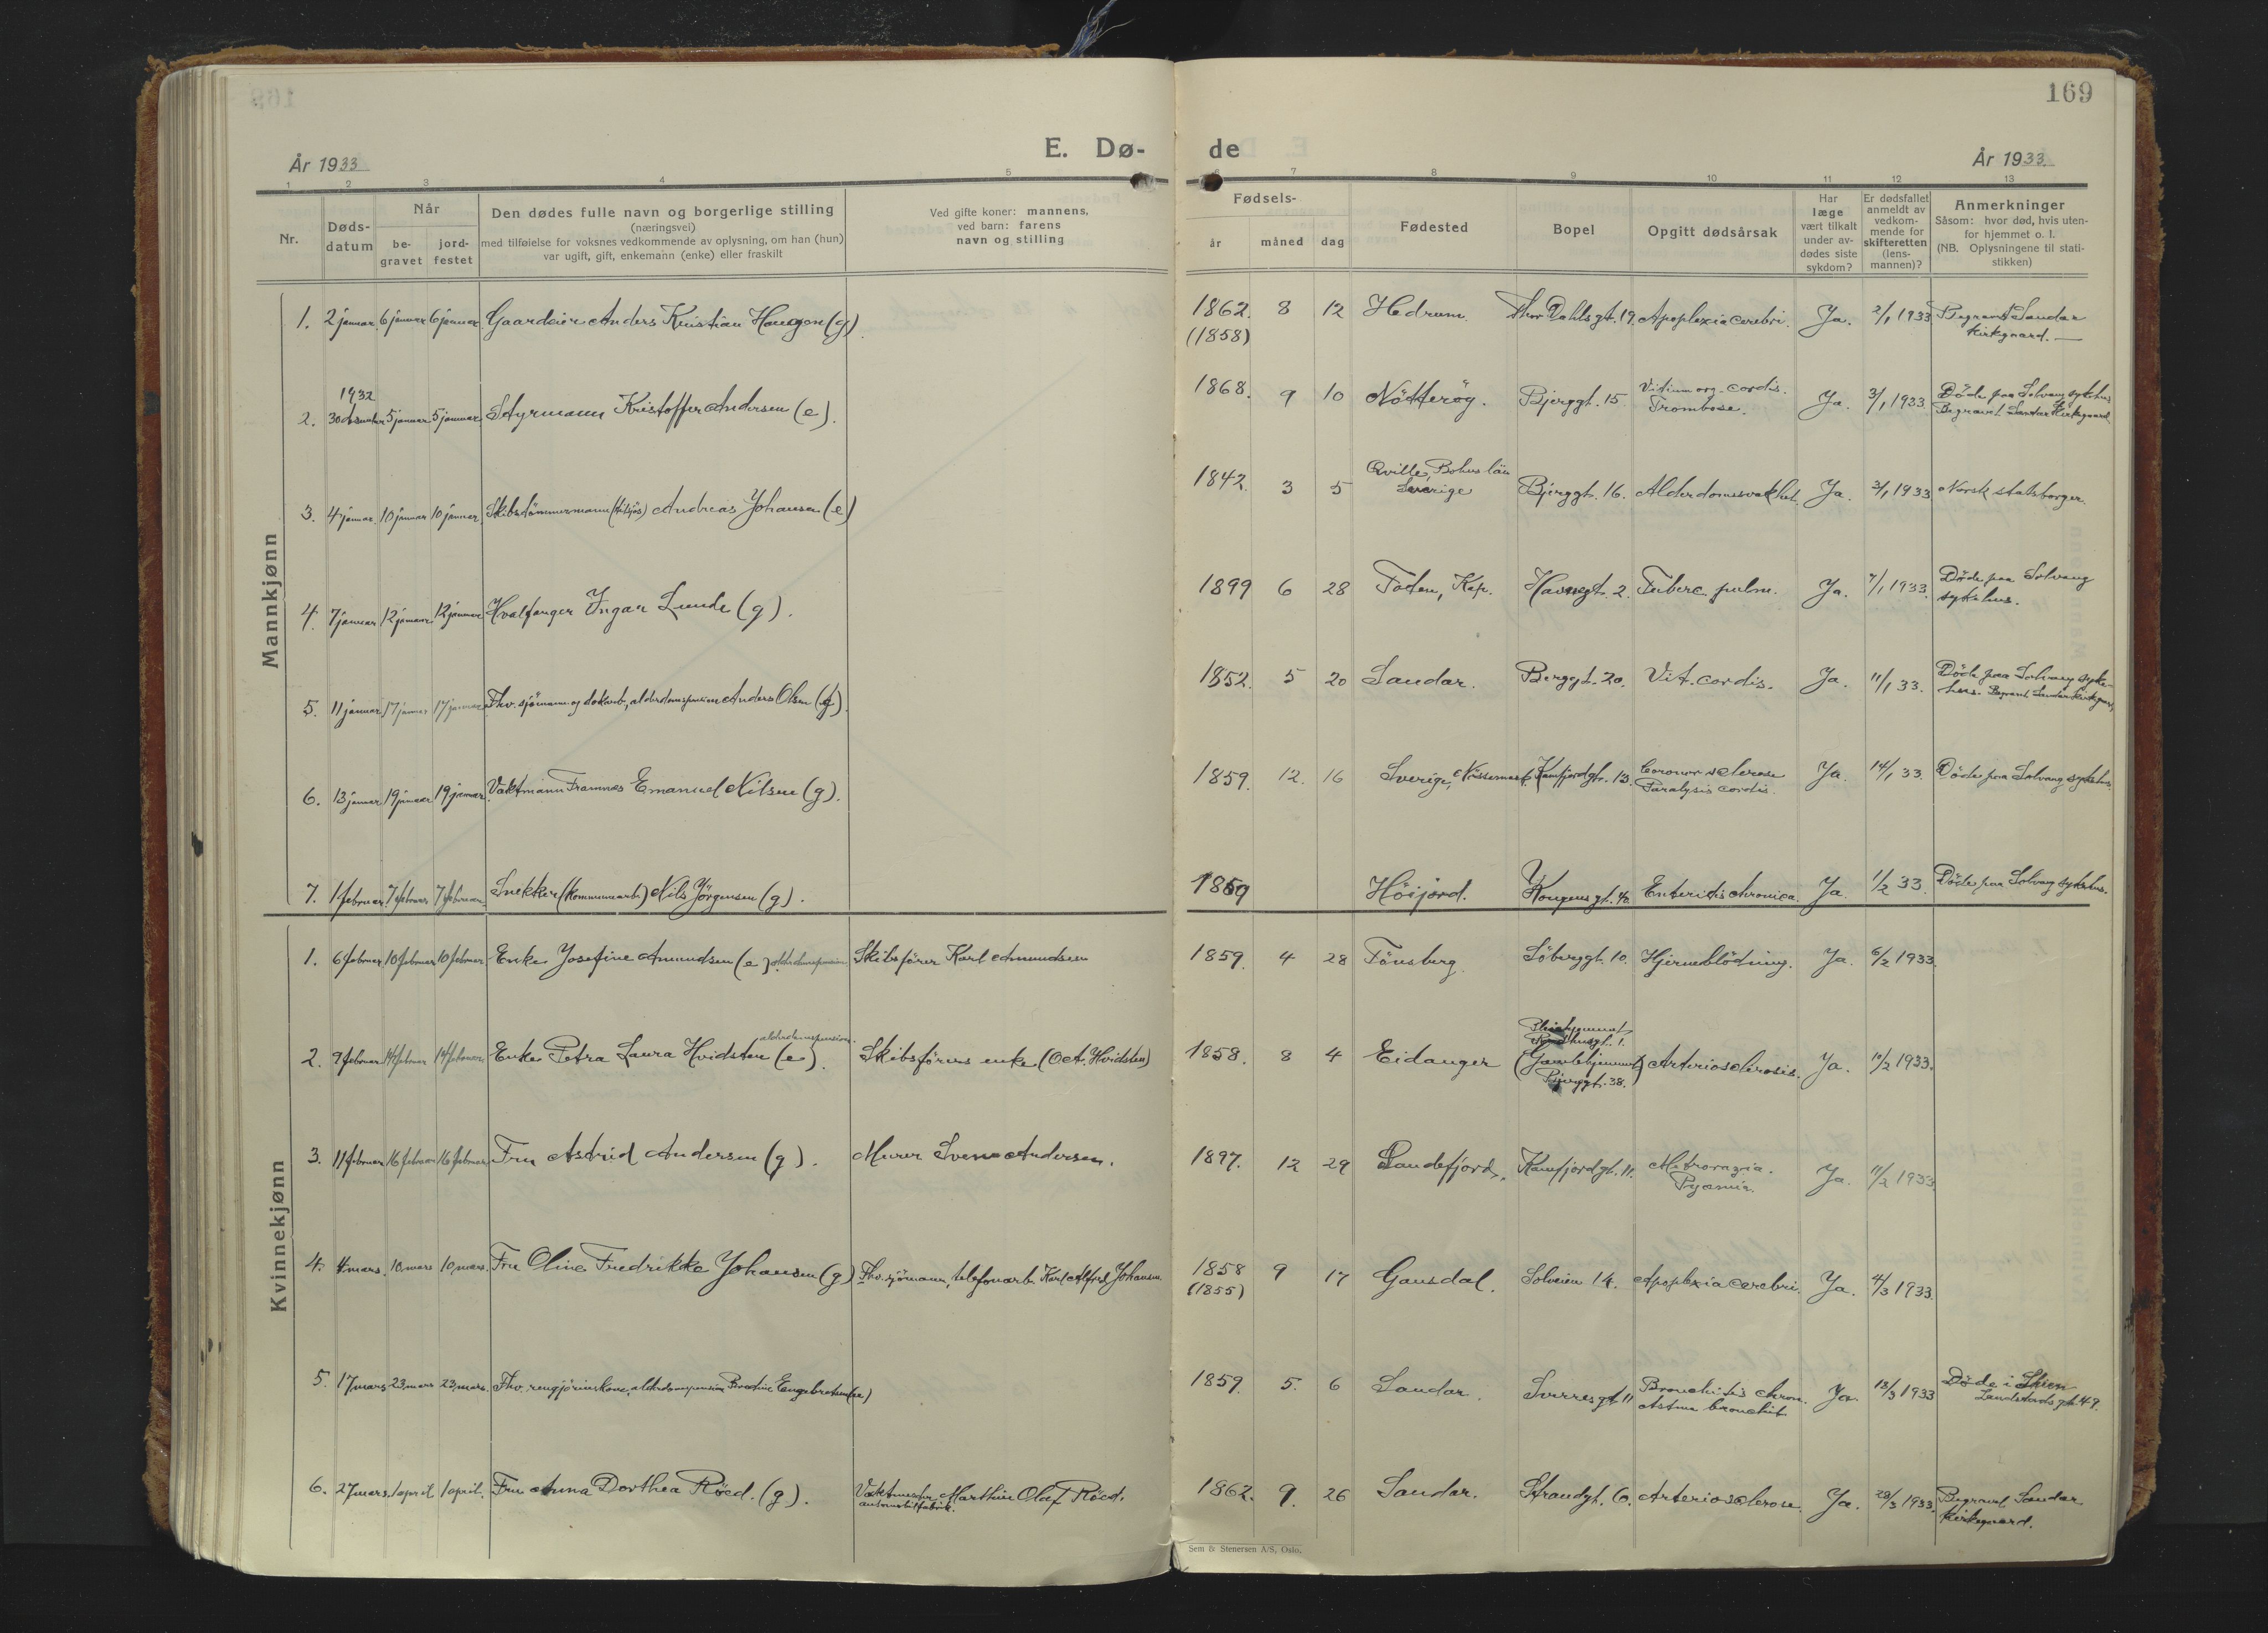 169
E. Dø- de
År 1933
År 1933.
1 2 3 4 5 6 7 8 9 10 11 12 13
Nr.
Døds-
datum
Når
be-
gravet
jord-
festet
Den dødes fulle navn og borgerlige stilling
(næringsvei)
med tilføielse for voksnes vedkommende av oplysning, om han (hun)
var ugift, gift, enkemann (enke) eller fraskilt
Ved gifte koner: mannens,
ved barn: farens
navn og stilling
Fødsels-
år måned dag
Fødested
Bopel
Opgitt dødsårsak
Har
læge
vært tilkalt
under av-
dødes siste
sykdom?
Er dødsfallet
anmeldt av
vedkom-
mende for
skifteretten
(lens-
mannen)?
Anmerkninger
Såsom: hvor død, hvis uten-
for hjemmet o. l.
(NB. Oplysningene til stati-
stikken)
Mannkjønn
1. 2 januar 6 januar 6 januar Gaardeier Anders Kristian Haugen (g) 1862. 8 12 Hedrum. Thor Dahls gt. 19. Apoplexia cerebri. Ja. 2/1 1933 Begravet Sandar
(1858) kirkgaard.
1932
2. 30 desember 5 januar 5 januar Styrmann Kristoffer Andersen (e). 1868. 9 10 Nötteröy. Bjerggt. 15. Vitium org. cordis. Ja. 3/1 1933 Döde paa Solvang sykehus
Trombose. Begravet Sandar Kirkgaard
3. 4 januar 10 januar 10 januar Skibstömmermann Andreas Johansen (e) 1842. 3 5 Qville, Bohus län Bjerggt. 16. Alderdomssvakhet. Ja. 3/1 1933 Norsk statsborger.
Sverige
4. 7 januar 12 januar 12 januar Hvalfanger Yngar Lunde (g). 1899 6 28 Toten, Kap. Havnegt. 2. Tuberc. pulm. Ja. 7/1 1933. Döde paa Solvang
sykehus.
5. 11 januar 17 januar 17 januar Fhv. sjömann og dokarb., alderdomspension Anders Olsen (g). 1852. 5 20 Sandar. Berggt. 20. Vit. cordis. Ja. 11/1 33. Döde paa Solvang syke-
hus. Begravet Sandar kirkgaard
6. 13 januar 19 januar 19 januar Vaktmann Framnæs Emanuel Nilsen (g). 1859. 12. 16 Sverige, Kamfjordgt. 13. Coronar sclerose Ja. 14/1 33. Döde paa Solvang sykehus.
Paralysis cordis.
7. 1 februar 7 februar 7 februar Snekker (kommunearb.) Nils Jörgensen (g). 1859 Höijord. Kongens gt. Enteritis chronica. Ja. 1/2 33. Döde paa Solvang sykehus.
Kvinnekjønn
1. 6 februar 10 februar 10 februar Enke Josefine Amundsen (e) alderdomspension Skibsförer Karl Amundsen 1859. 4 28 Tönsberg. Söberggt. 10. Hjerneblödning. Ja. 6/2 1933.
2. 9 februar 14 februar 14 februar Enke Petra Laura Hvidsten (e). alderdomspension. Skibsförers enke (O. A. Hvidsten) 1858. 8 4 Eidanger Pleiehjemmet
(Gamlehjemmet Bjerggt. 38.) Arteriosclerosis. Ja. 10/2 1933.
3. 11 februar 16 februar 16 februar Fru Astrid Andersen (g). Murer Svend Andersen. 1897. 12 29 Sandefjord. Kamfjordgt. 11. Metroragia. Ja. 11/2 1933.
Pyæmia.
4. 4 mars. 10 mars 10 mars. Fru Oline Fredrikke Johansen (g) Fhv. sjömann, telefonarb. Karl Alfred Johansen 1858 9 17 Gausdal. Solveien 14. Apoplexia cerebri. Ja. 4/3 1933.
(1855)
5. 17 mars 23 mars 23 mars. Fhv. rengjöringskone, alderdomspension Engebretsen (e) 1859. 5. 6 Sandar. Sverres gt. 11 Bronchitis chron. Ja. 18/3 1933 Döde i Skien
Astma bronchit Landstads gt. 49.
6. 27 mars. 1 april 1 april. Fru Anna Dorthea Röed. (g). Vaktmester Marthin Olaf Röed. 1862. 9. 26 Sandar. Strandgt. 6. Arteriosclerose. Ja. 28/3 1933. Begravet Sandar
Kirkegaard.
Sem & Stenersen A/S, Oslo.